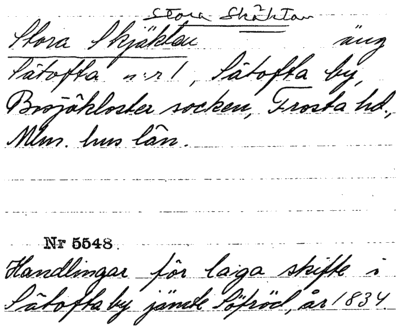 Stora Skäktan
Stora Skjäktan äng
Sätofta nr 1, Sätofta by,
Bosjökloster socken, Frosta hd.,
Mlm. hus län.
Nr 5548.
Handlingar för laga skifte i
Sätofta by jämte Söfröd, år 1834.